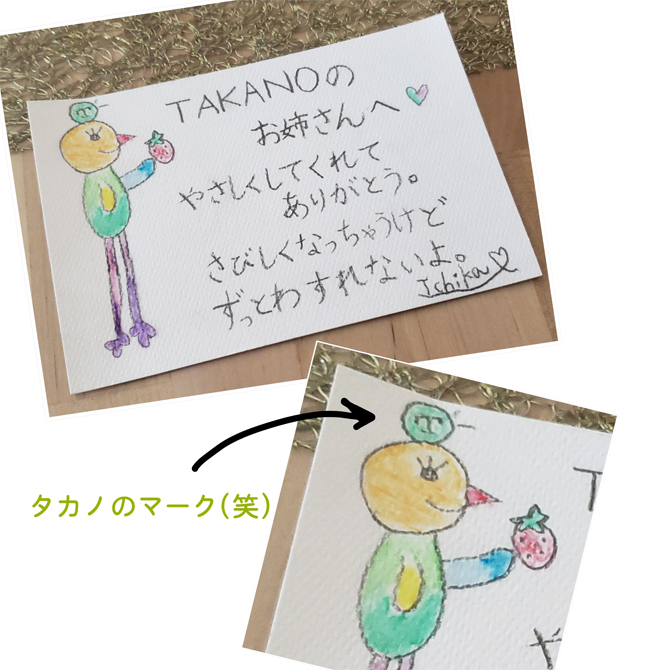 TAKANOの
お姉さんへ
やさしくしてくれて
ありがとう。
さびしくなっちゃうけど
ずっとわすれないよ。
Ichika
タカノのマーク(笑)
T